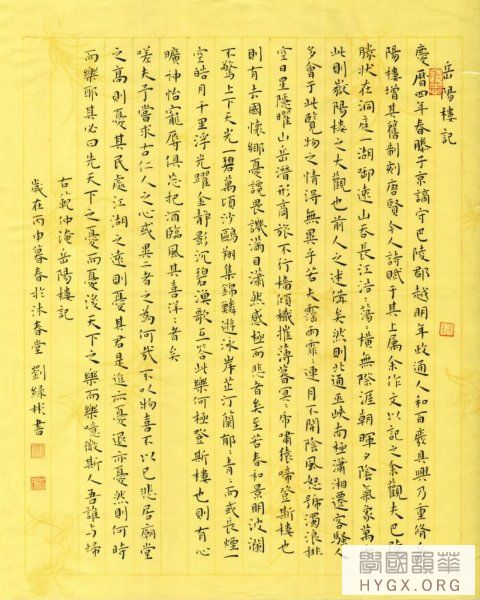 岳陽樓記
慶曆四年春滕子京謫守巴陵郡越明年政通人和百廢具興乃重脩
陽樓增其舊制刻唐賢今人詩賦于其上屬余作文以記之余觀夫巴陵
勝狀在洞庭一湖銜遠山吞長江浩々湯々橫無際涯朝暉夕陰氣象萬
此則嶽陽樓之大觀也前人之述備矣然則北通巫峽南極瀟湘遷客騷人
多會于此覽物之情得無異乎若夫霪雨霏々連月不開陰風怒號濁浪排
空日星隱曜山岳潛形商旅不行檣傾檝摧薄暮冥々嘯猿啼登斯樓也
則有去國懷鄉憂讒畏譏滿目蕭然感極而悲者矣至若春和景明波瀾
不驚上下天光一碧萬頃沙鷗翔集錦鱗遊泳岸芷汀蘭郁々青々而或長煙一
空皓月千里浮光躍金靜影沉碧漁歌互答此樂何極登斯樓也則有心
曠神怡寵辱俱忘把酒臨風其喜洋々者矣
嗟夫予嘗求古仁人之心或異二者之為何哉不以物喜不以己悲居廟堂
之高則憂其民處江湖之遠則憂其君是進亦憂退亦憂然則何時
而樂耶其必曰先天下之憂而憂後天下之樂而樂噫微斯人吾誰与歸
古人范仲淹岳陽樓記
歲在丙申暮春於沐春堂劉緑彬書
華韻國學
HYGX.ORG